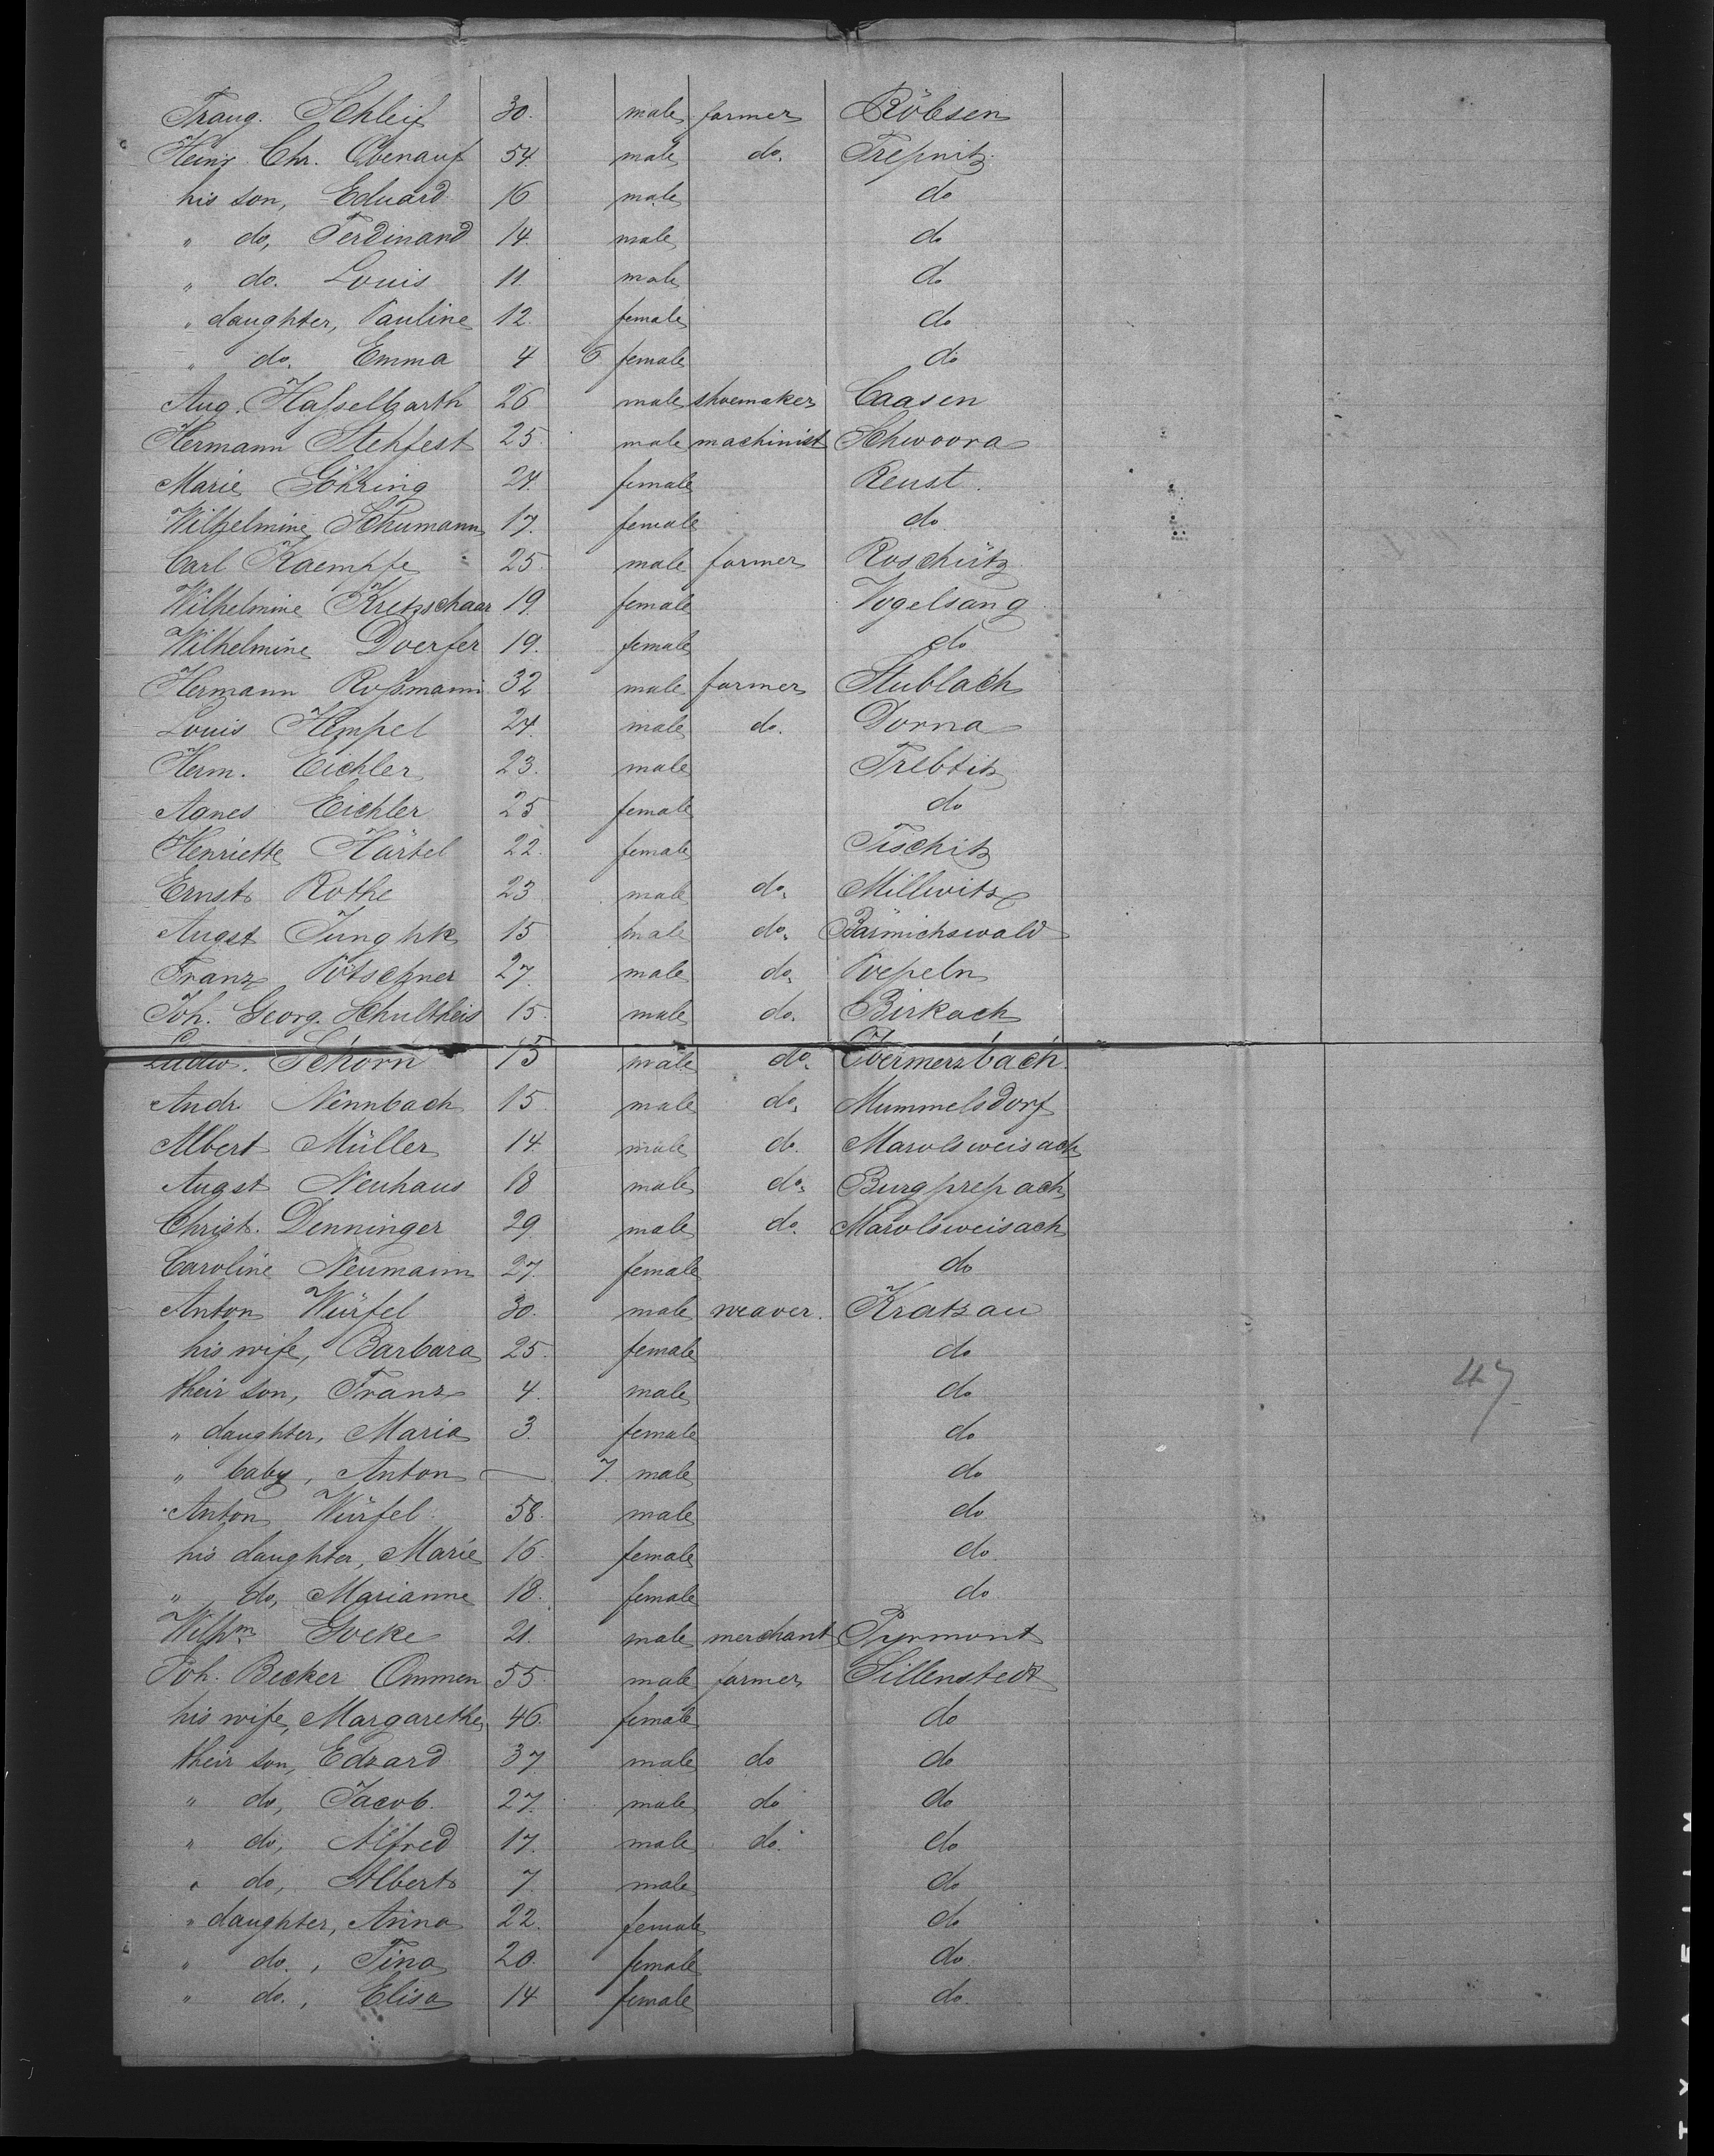 Traug. Schleif 30. male farmer Röbsen
Heinr. Chr. Obenauf 54. male do. Treßnitz
his son, Eduard 16 male do
" do, Ferdinand 14. male do
" do. Louis 11. male do
" daughter, Pauline 12. female do
" do. Emma 4 6 female do
Aug. Haßelbarth 26 male shoemaker Caasen
Hermann Stehfest 25. male machinist Schwoora
Marie Göhring 24. female Reust.
Wilhelmine Schumann 17. female do
Carl Kaempfe 25. male farmer Roschütz
Wilhelmine Kretzschaar 19. female Vogelsang
Wilhelmine Doerfer 19. female do
Hermann Roßmann 32 male farmer Stublach
Louis Hempel 24. male do. Dorna
Herm. Eichler 23. male Trebtitz
Agnes Eichler 25 female do
Henriette Härtel 22. female Tischitz
Ernst Rothe 23. male do. Millwitz
Augst Junghk 15 male do. Bärmichswald
Franz Pötschner 27. male do. Poepeln
Joh. Georg. Schultheis 15. male do. Birkach
Ludw. Schorn 15 male do. Ebermerzbach
Andr. Nennbach 15. male do. Mummelsdorf
Albert Müller 14. male do. Marolsweisach
Augst Neuhaus 18 male do. Burgprepach
Christ. Denninger 29 male do. Marolsweisach
Caroline Neumann 27. female do
Anton Würfel 30. male weaver. Kratzau
his wife, Barbara 25. female do
their son, Franz 4. male do
" daughter, Maria 3. female do
" baby, Anton — 7. male do
Anton Würfel 58. male do
his daughter, Marie 16. female do.
" do, Marianne 18. female do
Wilhm. Goeke 21. male merchant Pyrmont
Joh. Becker Ommen 55 male farmer Sillenstedt
his wife, Margarethe 46. female do
their son, Edzard 37 male do do
" do, Jacob. 27. male do do
" do, Alfred 17. male do. do
" do, Albert 7 male do
" daughter, Anna 22. female do
" do., Tina 20. female do
" do., Elisa 14 female do.
47